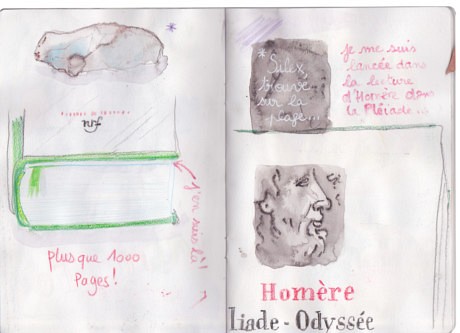 nrf
J'en suis là !
plus que 1000
Pages !
* Silex,
trouvé
sur la
plage...
Je me suis
lancée dans
la lecture
d'Homère dans
la Pléiade...
Homère
Iliade - Odyssée